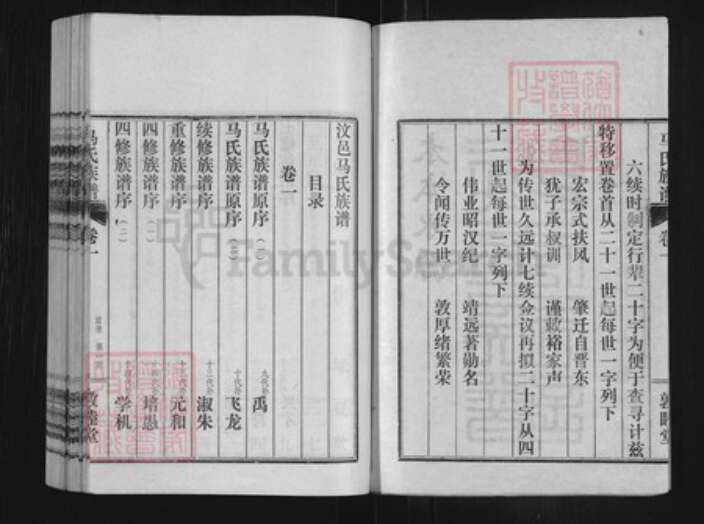 马氏族谱
卷一
敦睦堂
六续时刽定行辈二十字为便于查寻计兹
特移置卷首从二十一世起每世一字列下
宏宗式扶风 肇迁自晋东
犹子承叔训 谨敕裕家声
为传世久远计七续佥议再拟二十字从四
十一世起每世一字列下
伟业昭汉纪 靖远著勋名
令闻传万世 敦厚绪繁荣
汶邑马氏族谱
目录
卷一
马氏族谱原序（一） 九代孙 禹
马氏族谱原序（二） 十代孙 飞龙
续修族谱序 十三代孙 淑朱
重修族谱序 元和
四修族谱序（一） 培愚
四修族谱序（二） 学机
马氏族谱
卷一
敦睦堂
FamilySearch